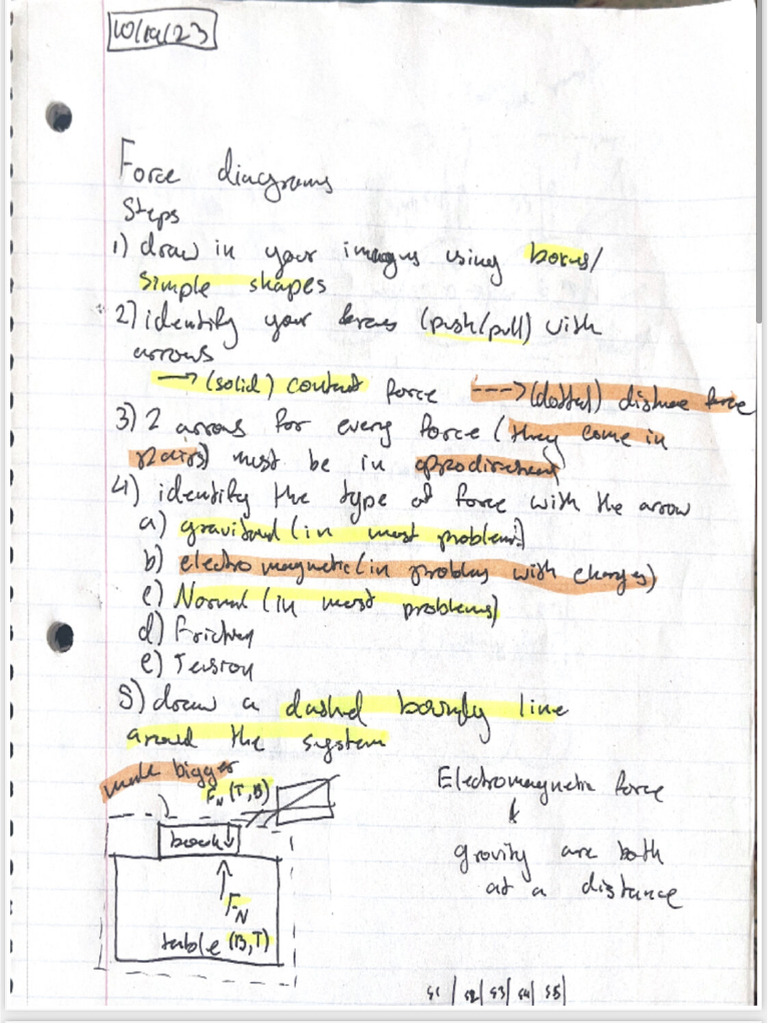 10/19/23
Force diagrams
Steps
1) draw in your images using boxes/
simple shapes
2) identify your forces (push/pull) with
arrows
→ (solid) contact force ---> (dotted) distance force
3) 2 arrows for every force (they come in
pairs) must be in
4) identify the type of force with the arrow
a) gravitonal (in most problems)
b) electromagnetic (in problems with charges)
c) Normal (in most problems)
d) Friction
e) Tension
5) draw a dashed boundry line
around the system
made bigger
FN (T,B)
book ↓
↑
FN
table (B,T)
Electromagnetic force
&
gravity are both
at a distance
S1 | S2 | S3 | S4 | S5 |